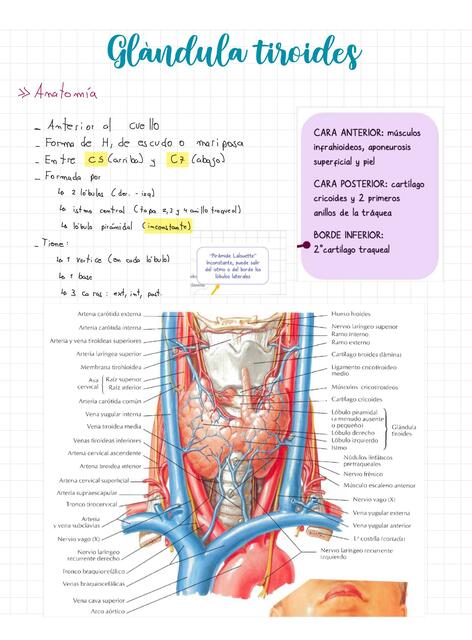 Glàndula tiroides
» Anatomía
- Anterior al cuello
- Forma de H, de escudo o mariposa
- Entre C5 (arriba) y C7 (abajo)
- Formada por
↳ 2 lóbulos (der. - izq)
↳ istmo central (tapa 2, 3 y 4 anillo traqueal)
↳ lóbulo piramidal (inconstante)
- Tiene:
↳ 1 vertice (en cada lóbulo)
↳ 1 base
↳ 3 caras: ext, int, post.
"Pirámide Lalouette"
Inconstante, puede salir
del istmo o del borde los
lóbulos laterales
CARA ANTERIOR: músculos
infrahioideos, aponeurosis
superficial y piel
CARA POSTERIOR: cartílago
cricoides y 2 primeros
anillos de la tráquea
BORDE INFERIOR:
2°cartílago traqueal
Arteria carótida externa
Arteria carótida interna
Arteria y vena tiroideas superiores
Arteria laríngea superior
Membrana tirohioidea
Asa cervical
Raíz superior
Raíz inferior
Arteria carótida común
Vena yugular interna
Vena tiroidea media
Venas tiroideas inferiores
Arteria cervical ascendente
Arteria tiroidea inferior
Arteria cervical superficial
Arteria supraescapular
Tronco tirocervical
Arteria
y vena subclavias
Nervio vago (X)
Nervio laríngeo
recurrente derecho
Tronco braquiocefálico
Venas braquiocefálicas
Vena cava superior
Arco aórtico
Hueso hioides
Nervio laríngeo superior
Ramo interno
Ramo externo
Cartílago tiroides (lámina)
Ligamento cricotiroideo
medio
Músculos cricotiroideos
Cartílago cricoides
Lóbulo piramidal
(a menudo ausente
o pequeño)
Lóbulo derecho
Lóbulo izquierdo
Istmo
Glándula
tiroides
Nódulos linfáticos
pretraqueales
Nervio frénico
Músculo escaleno anterior
Nervio vago (X)
Vena yugular externa
Vena yugular anterior
1.ª costilla (cortada)
Nervio laríngeo recurrente
izquierdo